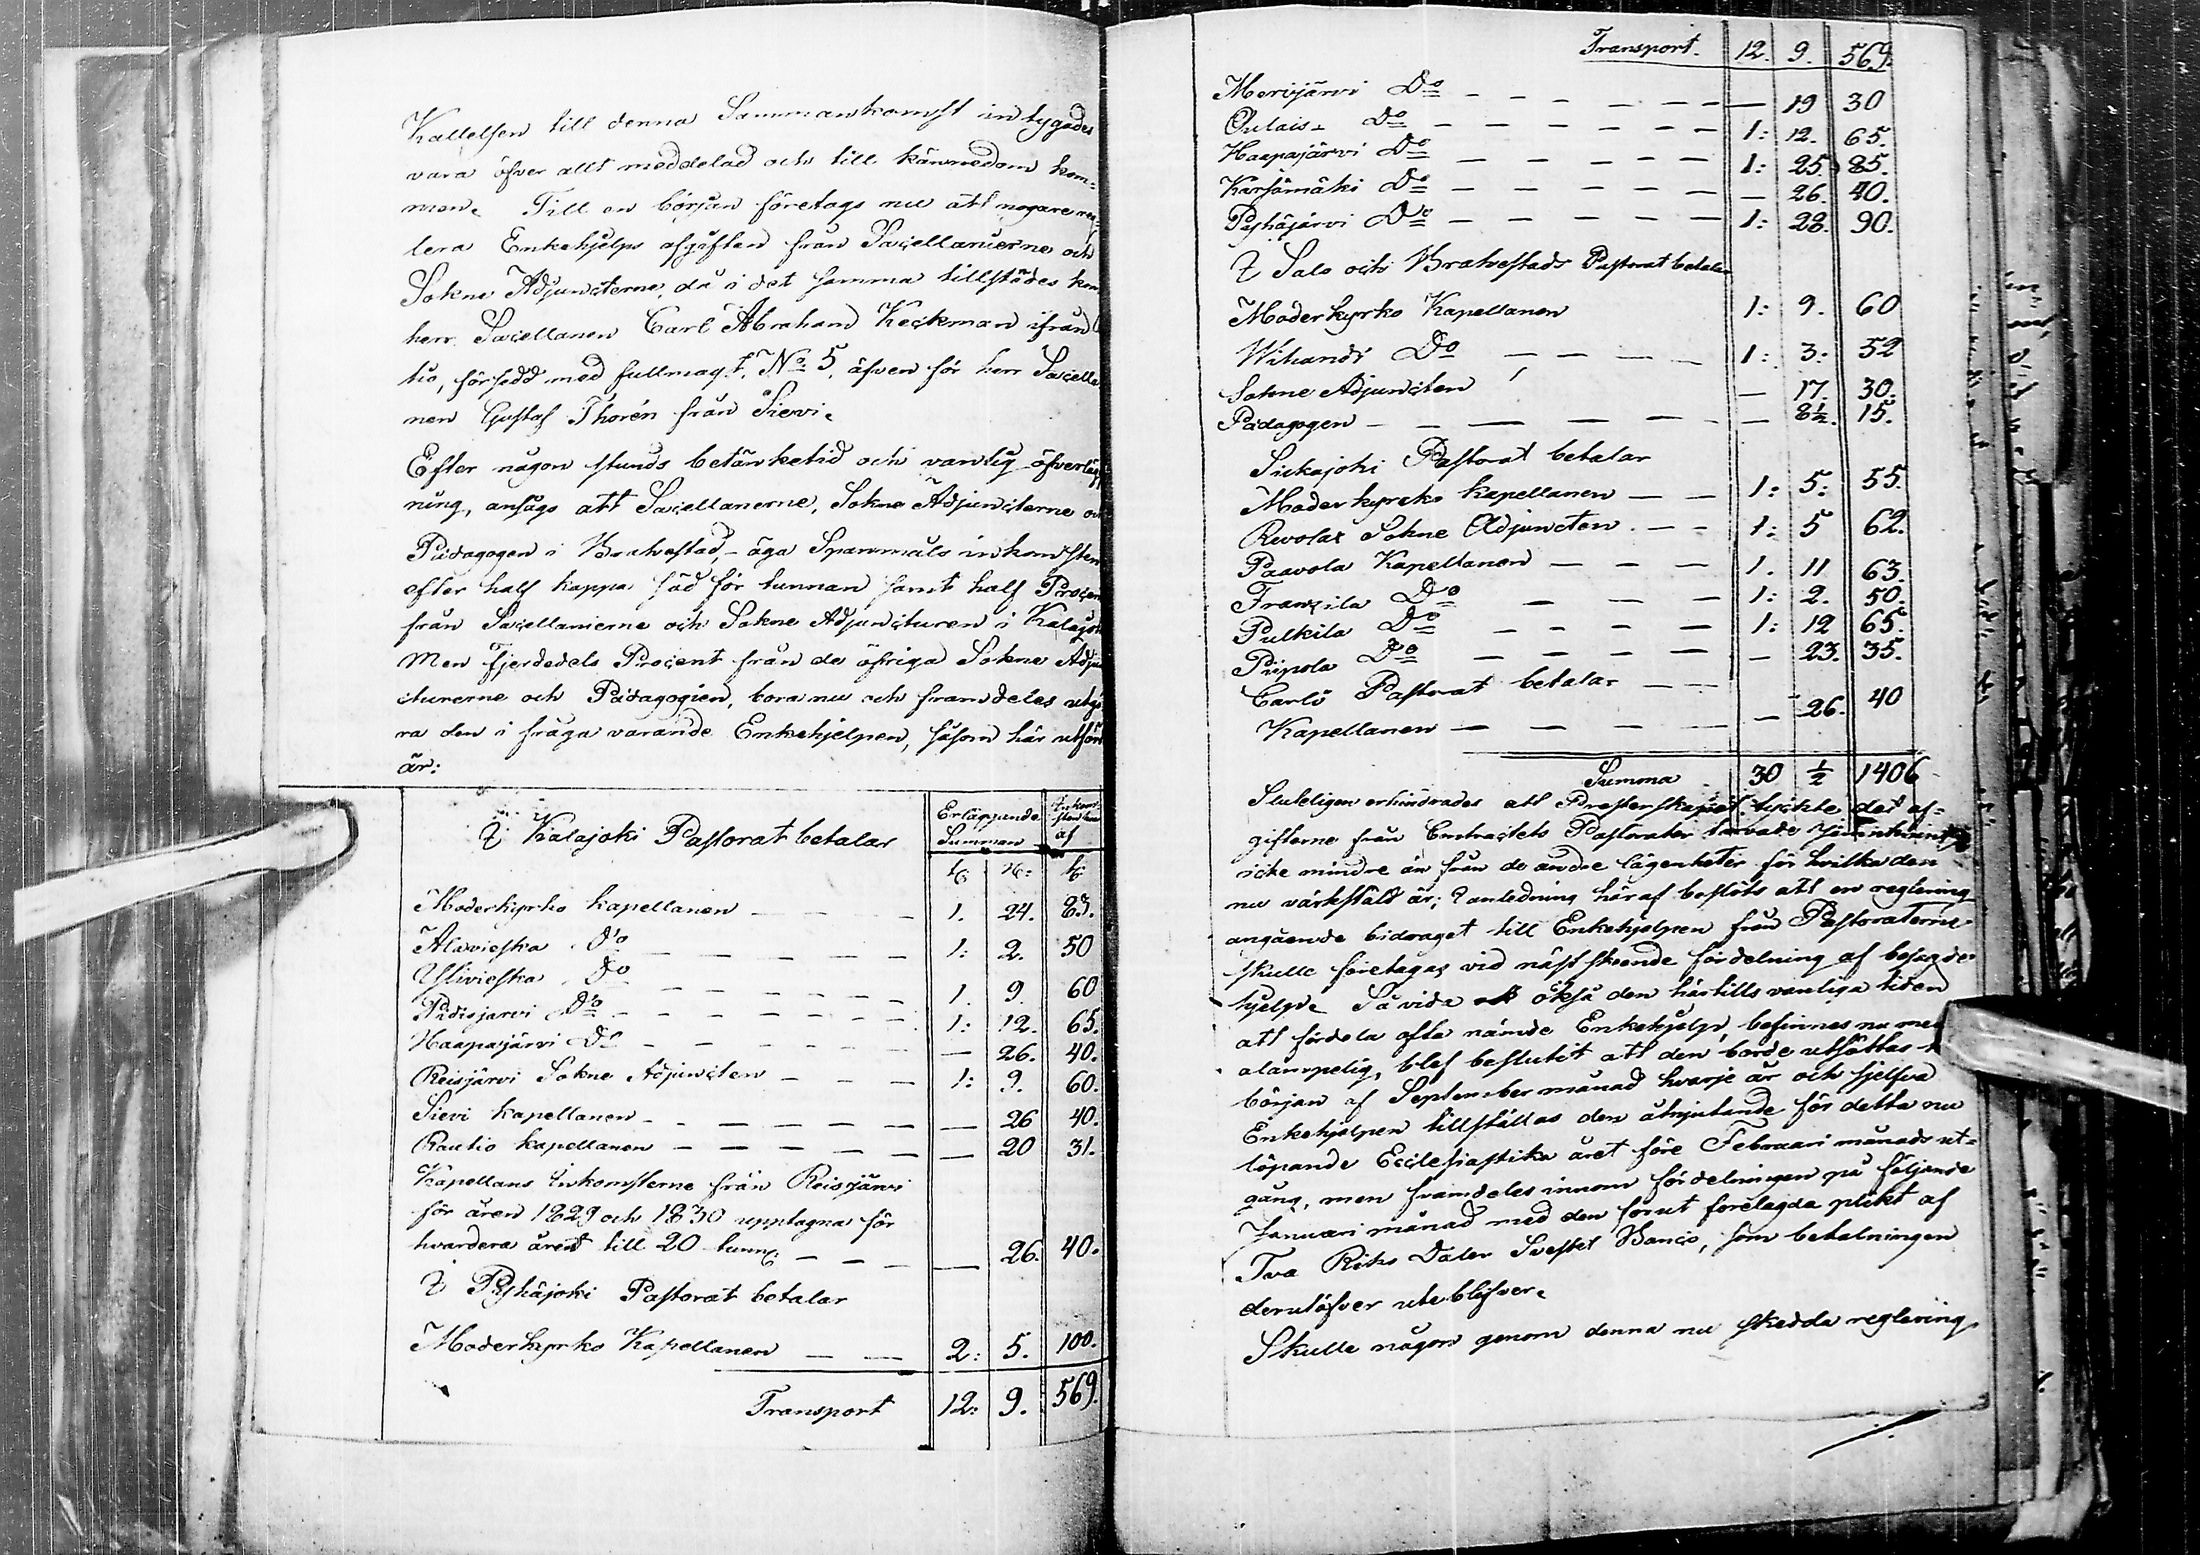 Kallelsen till denna Sammankomst intygades
vara öfver allt meddelad och till kännedom kom=
men. Till en början företogs nu att nogare reg
lera Enkehjelps afgiften från Sacellanierne och
Sokne Adjuncterne, då i det samma tillstädes kom
herr Sacellanen Carl Abraham Keckman ifrån
tio, försedd med fullmagt, No 5, äfven för herr Sacella
nen Gustaf Thorén från Sievi.
Efter någon stunds betänketid och vanlig öfverlägg
ning, ansågs att Sacellanerne, Sokne Adjuncterne och
Pädagogen i Brahestad, äga Spanmåls inkomsten
efter half kappa säd för tunnan samt half Procent
från Sacellanierne och Sokne Adjuncturen i Kalajoki
Men fjerdedels Procent från de öfriga Sokne Adjun
cturerne och Pädagogien, bora nu och framdeles utgö
ra den i fråga varande Enkehjelpen, såsom här utfördt
är:
I Kalajoki Pastorat betalar
Erläggande Summan
af
Moderkyrko kapellanen — — 1. 24. 83.
Alavieska Do — — — — 1: 2. 50
Ylivieska Do — — — — 1. 9. 60
Pidisjarvi Do — — — — 1: 12. 65.
Haapajärvi Do — — — — — 26. 40.
Reisjärvi Sokne Adjuncten — — — 1: 9. 60.
Sievi kapellanen — — — — — 26 40.
Rautio kapellanen — — — — — 20 31.
Kapellans Inkomsterne från Reisjärvi
för åren 1829 och 1830 upptagna för
hvardera året till 20 tunn: — — — 26. 40.
I Pyhäjoki Pastorat betalar
Moderkyrko Kapellanen — — 2: 5. 100.
Transport 12: 9. 569.
Transport. 12. 9. 569.
Merijärvi Do — — — — — 19 30
Oulais Do — — — — 1: 12. 65.
Haapajärvi Do — — — — 1: 25. 85.
Kärsämäki Do — — — — — 26. 40.
Pyhäjärvi Do — — — — 1: 28. 90.
I Salo och Brahestads Pastorat betalar
Moderkyrko Kapellanen 1: 9. 60
Wihandi Do — — — 1: 3: 52
Sokne Adjuncten — 17. 30.
Pädagogen — — — — — 8½. 15.
Siikajoki Pastorat betalar
Moderkyrko kapellanen — — 1: 5: 55.
Revolax Sokne Adjuncten — — 1: 5 62.
Paavola Kapellanen — — — 1. 11 63.
Franzila Do — — — 1: 2. 50.
Pulkila Do — — — — 1: 12 65.
Piipola Do — — — — — 23. 35.
Carlö Pastorat betalar — —
Kapellanen — — — — — 26. 40
Summa 30 ½ 1406
Sluteligen erhindrades att Presterskapet tyckte det af=
gifterne från Contractets Pastorater
icke mindre än från de andre lägenheter för hvilka den
nu värkstäld är; I anledning häraf beslöts att en reglering
angående bidraget till Enkehjelpen från Pastoraterne
skulle företagas vid näst skeende fördelning af besagde
hjelp. Så vida också den härtills vanliga tiden
att fördela ofta nämde Enkehjelp, befinnes nu mer
olämpelig, blef beslutit att den borde utsättas
början af September månad hvarje år och sjelfva
Enkehjelpen tillställas den åtnjutande för detta nu
löpande Ecclesiastika året före Februari månads ut=
gång, men framdeles innom fördelningen på följande
Januari månad med den förut förelagda plikt af
Tva Riks Daler Svenskt Banco, som betalningen
derutöfver uteblifver.
Skulle någon genom denna nu skedda reglering